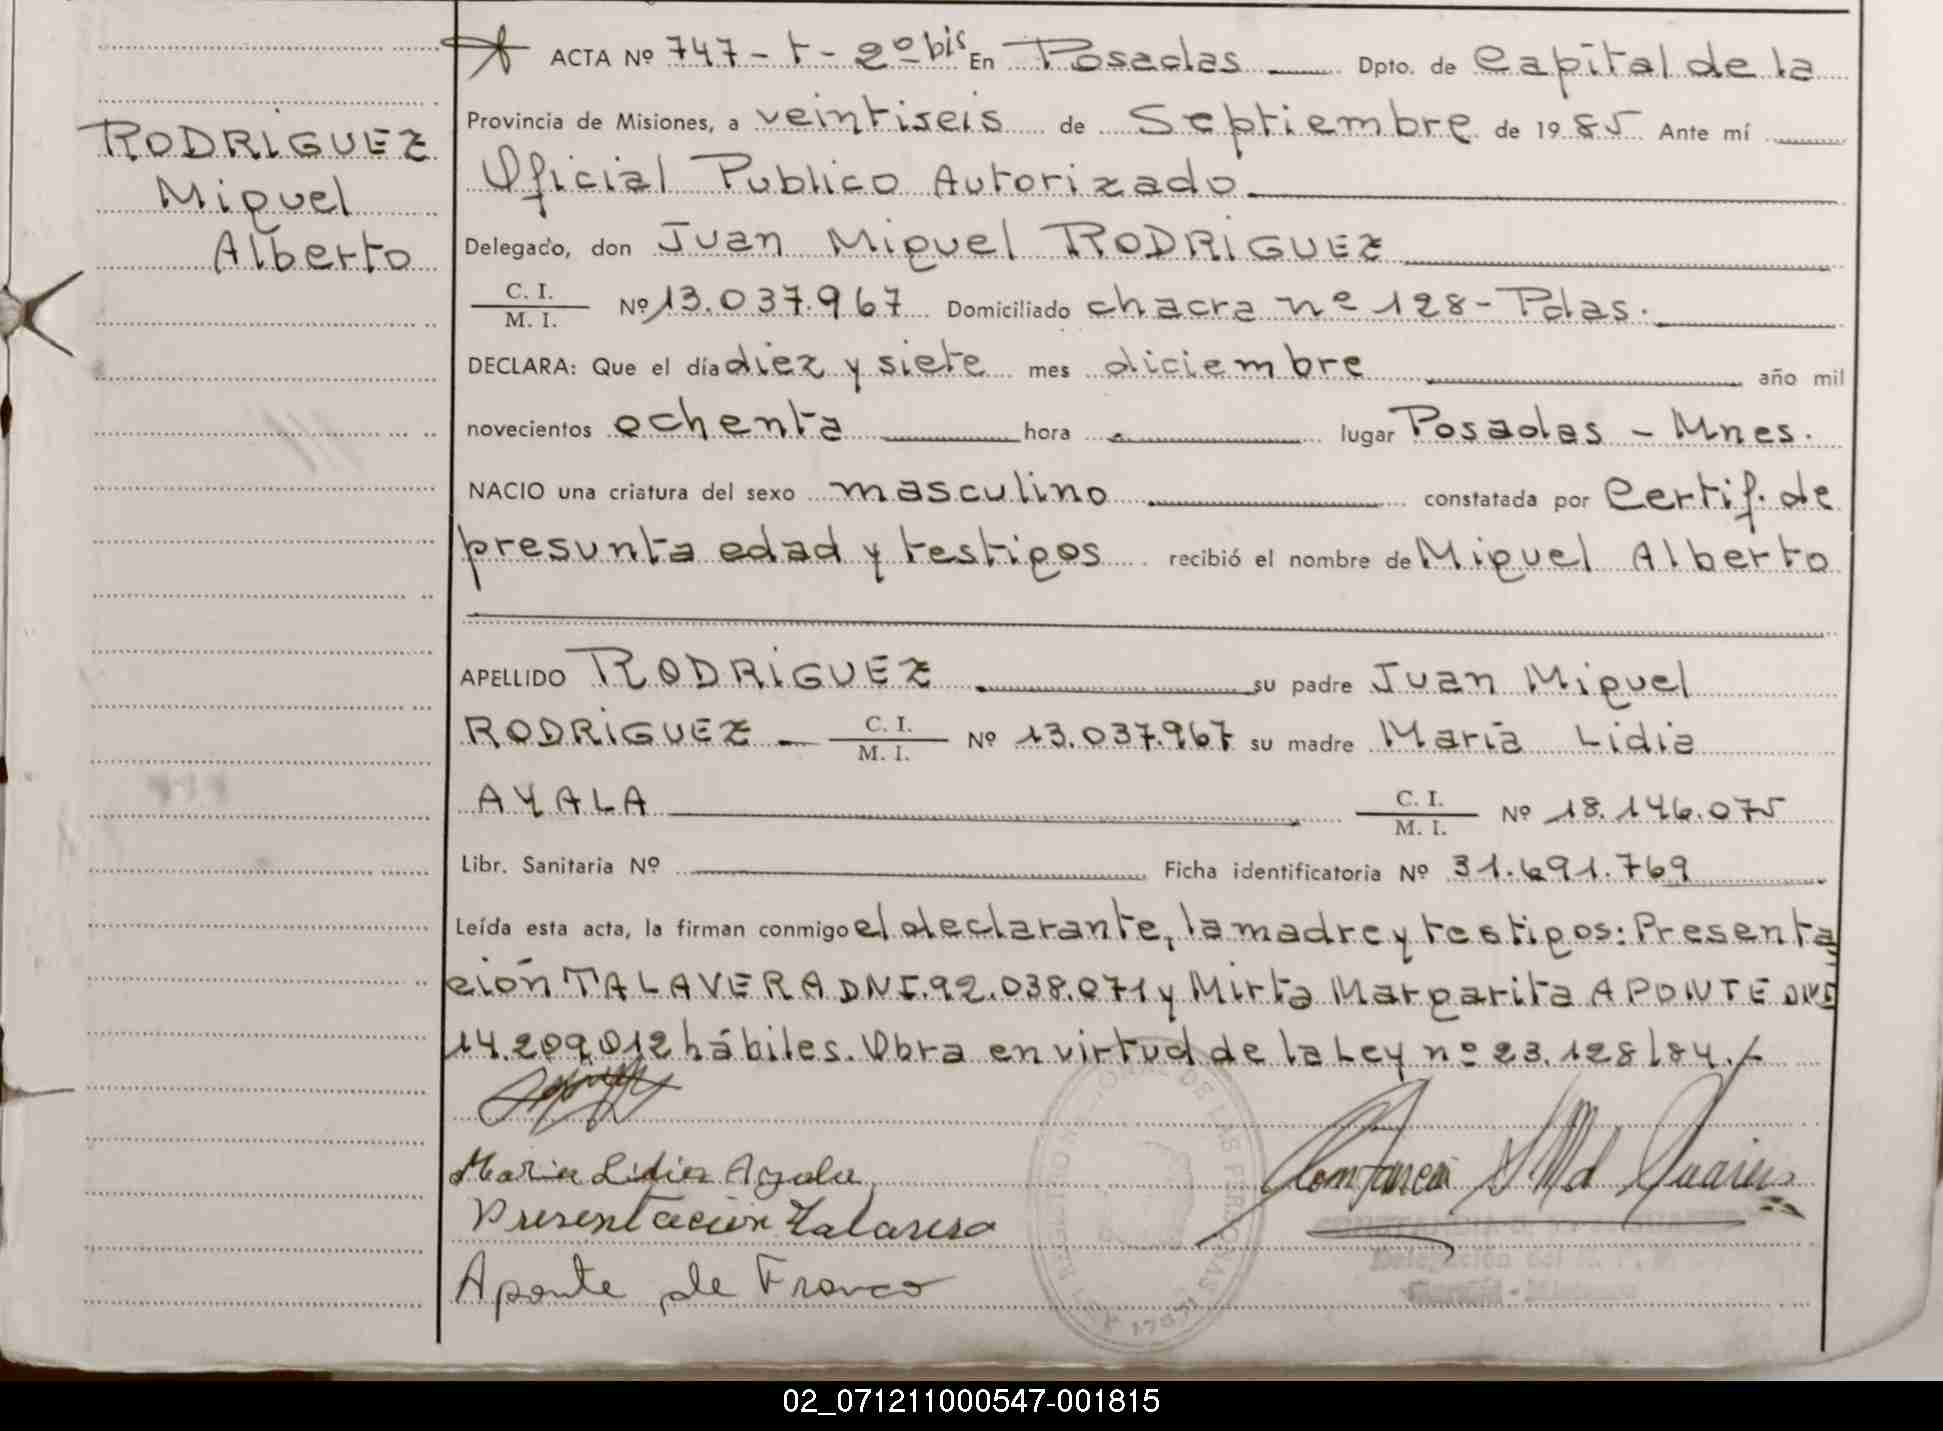 RODRIGUEZ
Miguel
Alberto
ACTA Nº 747-t-2º bis En Posadas Dpto. de Capital de la
Provincia de Misiones, a veintiseis de Septiembre de 1985 Ante mí
Oficial Publico Autorizado
Delegado, don Juan Miguel RODRIGUEZ
C. I.
M. I. Nº 13.037.967 Domiciliado chacra nº 128-Pdas.
DECLARA: Que el día diez y siete mes diciembre año mil
novecientos ochenta hora lugar Posadas - Mnes.
NACIO una criatura del sexo masculino constatada por Certif. de
presunta edad y testigos recibió el nombre de Miguel Alberto
APELLIDO RODRIGUEZ su padre Juan Miguel
RODRIGUEZ C. I. M. I. Nº 13.037.967 su madre Maria Lidia
AYALA C. I. M. I. Nº 18.146.075
Libr. Sanitaria Nº Ficha identificatoria Nº 31.691.769
Leída esta acta, la firman conmigo el declarante, la madre y testigos: Presenta
ción TALAVERA DNI. 92.038.071 y Mirta Margarita APONTE DNI
14.209.012 hábiles. Obra en virtud de la Ley nº 23.128/84./
Maria Lidia Ayala
Presentacion Talavera
Aponte de Franco
DE LAS PERSONAS
02_071211000547-001815